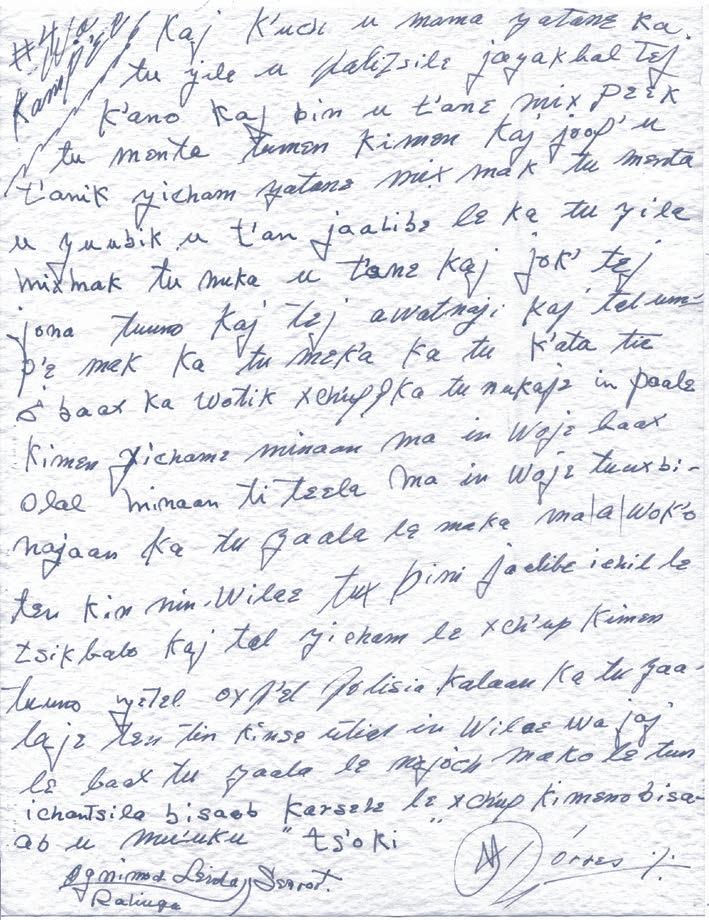 Kaj k'uch u mama yatane ka
tu yile u palitsile jayakbal tej
k'ano kaj bin u t'ane mix peek
tu menta tumen kimen kaj joop' u
t'anik yicham yatane mix mak tu menta
u yuubik u t'an jaalibe le ka tu yila
mixmak tu nuka u t'ane kaj jok' tej
jona tuuno kaj tej awatnaji kaj tal um-
p'e mak ka tu mek'a ka tu k'ata tie
baax ka wotik xch'up ka tu nukaje in paale
kimen yichame minaan ma in woje baax
olal minaan ti teela ma in woje tuuxbi-
najaan ka tu yaala le maka ma a wok'o
ten kin nin wilae tux bini jaalibe ichil le
tsikbalo kaj tal yicham le xch'up kimen
tuuno yetel oxp'el polisia kalaan ka tu yaa-
laje ten tin kinse utial in wilae wa jaj
le baax tu yaala le nojoch mako le tun
ichantsila bisaab karsele le xch'up kimeno bisa-
ab u mu'uku "ts'oki"